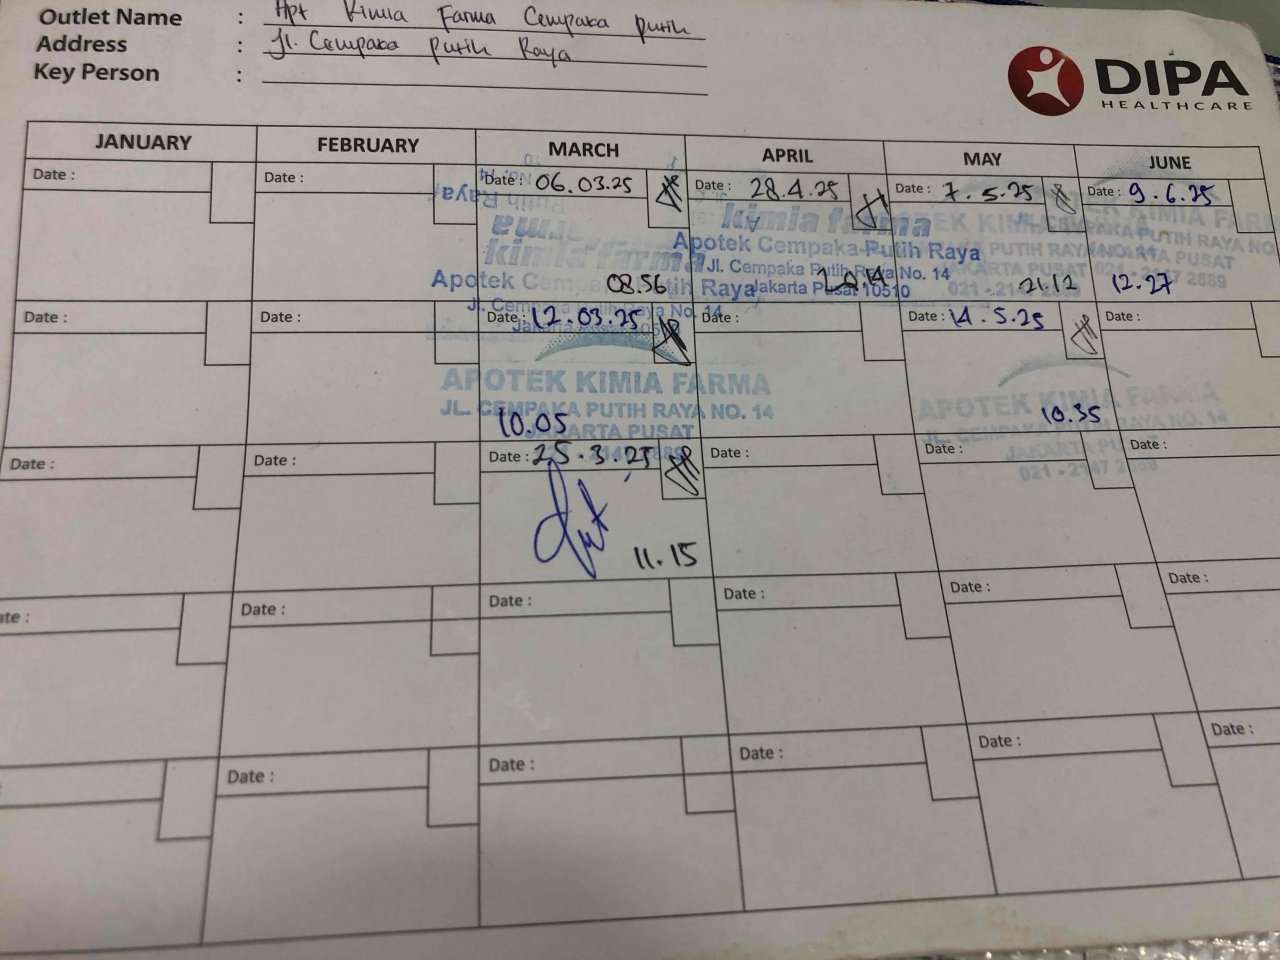 Outlet Name : Apt Kimia Farma Cempaka Putih
Address : Jl. Cempaka Putih Raya
Key Person :
DIPA
HEALTHCARE
JANUARY FEBRUARY MARCH APRIL MAY JUNE
Date : Date : Date : 06.03.25 Date : 28.4.25 Date : 7.5.25 Date : 9.6.25
kimia farma
Apotek Cempaka Putih Raya
Jl. Cempaka Putih Raya No. 14
Jakarta Pusat 10510
kimia farma
08.56 21.12 12.27
Date : Date : Date : 12.03.25 Date : Date : 14.5.25 Date :
APOTEK KIMIA FARMA
JL. CEMPAKA PUTIH RAYA NO. 14
JAKARTA PUSAT
10.05 10.35
APOTEK KIMIA FARMA
JAKARTA PUSAT
021 - 2147 2889
Date : Date : Date : 25.3.25 Date : Date : Date :
11.15
Date : Date : Date : Date : Date :
Date : Date : Date : Date : Date :